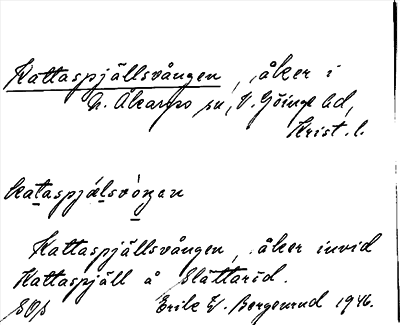 Kattaspjällsvången, åker i
N. Åkarps sn, V. Göinge hd,
Krist. l.
kataspjálsvòŋan
Kattaspjällsvången, åker invid
Kattaspjäll å Slättaröd.
Erik V. Borgenrud 1946.